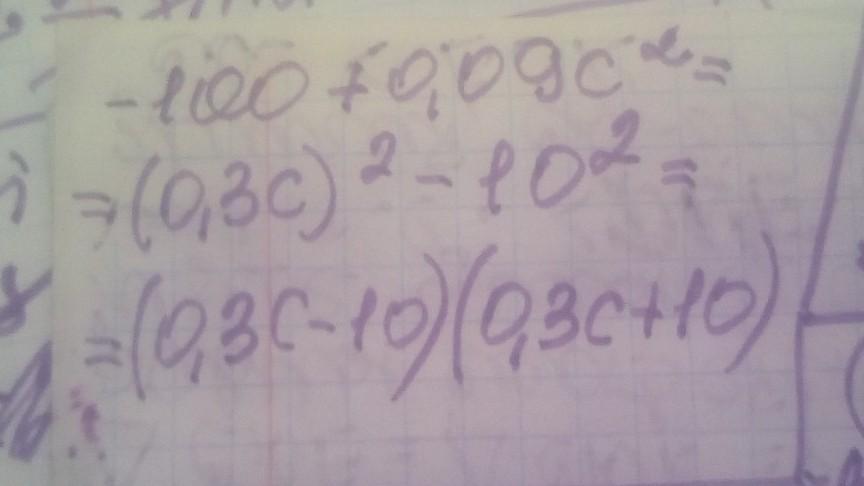 -100+0,09c²=
=(0,3c)²-10²=
=(0,3c-10)(0,3c+10)